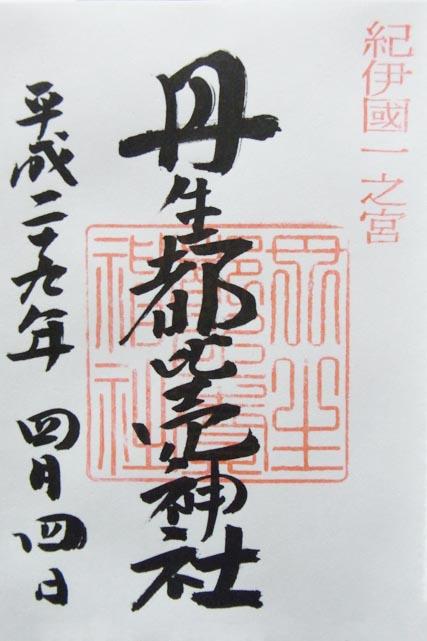 紀伊國一之宮
丹生都比売神社
丹生都比賣神社
平成二十九年 四月四日